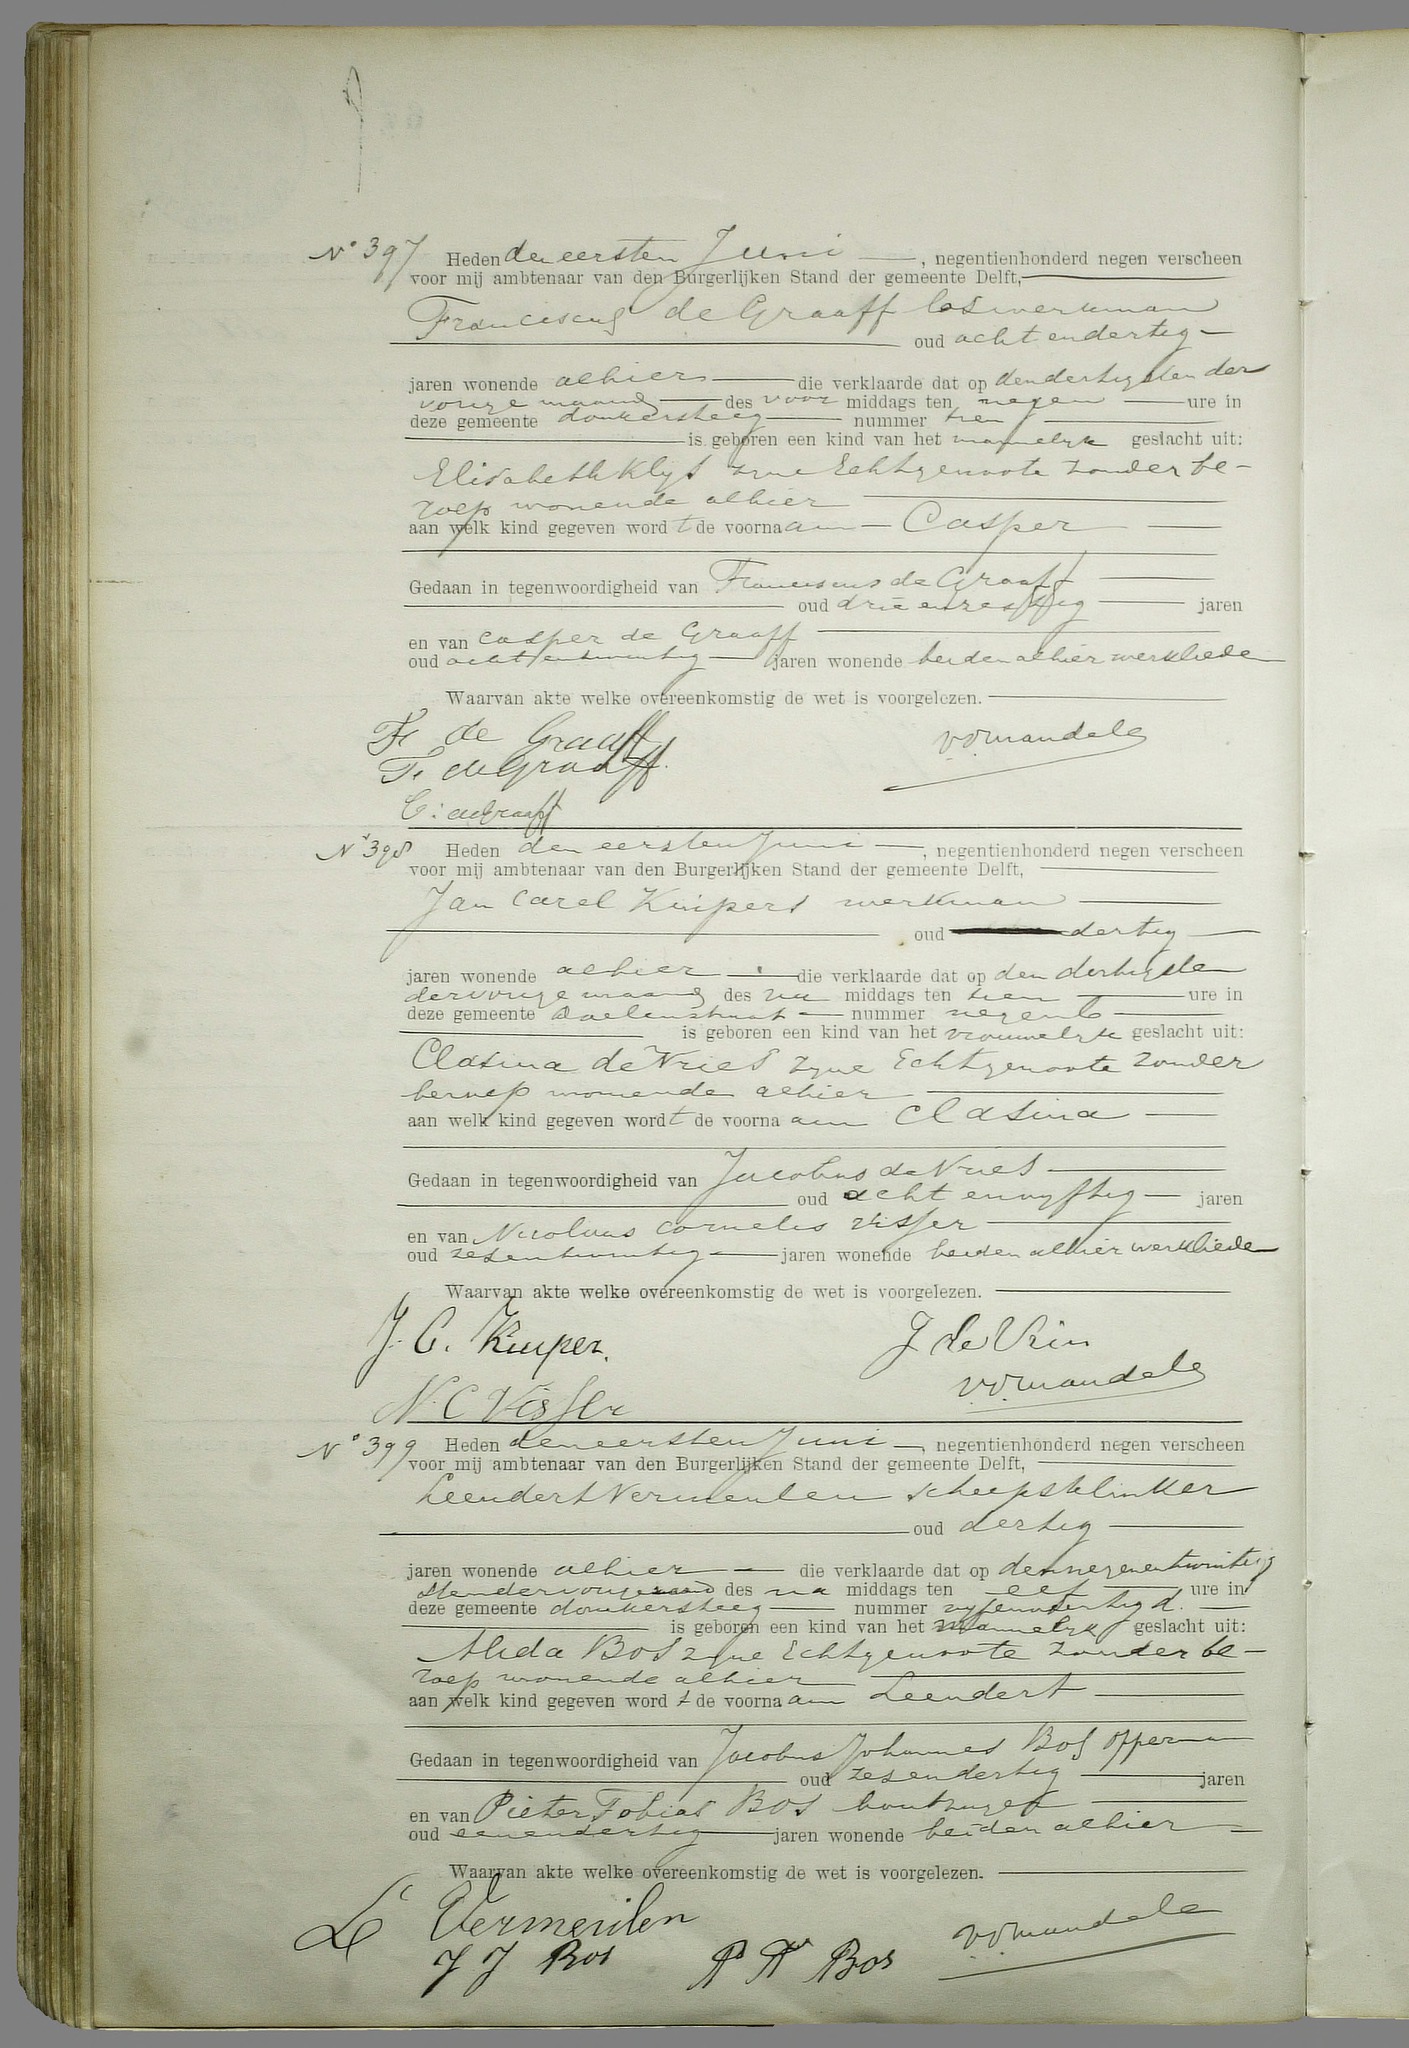 Nº 397 Heden den eersten Juni, negentienhonderd negen verscheen
voor mij ambtenaar van den Burgerlijken Stand der gemeente Delft,
Franciscus de Graaff los werkman
oud acht en dertig
jaren wonende alhier die verklaarde dat op den dertigsten der
vorige maand des voor middags ten negen ure in
deze gemeente donkersteeg nummer tien
is geboren een kind van het mannelyk geslacht uit:
Elisabeth Klys zyne Echtgenoote zonder be-
roep wonende alhier
aan welk kind gegeven wordt de voornaam Casper
Gedaan in tegenwoordigheid van Franciscus de Graaff
oud drie en zestig jaren
en van Casper de Graaff
oud acht en twintig jaren wonende beiden alhier werklieden
Waarvan akte welke overeenkomstig de wet is voorgelezen.
Fs de Graaff
vdmandele
Fs de Graaff.
C: de Graaff
Nº 398 Heden den eersten Juni, negentienhonderd negen verscheen
voor mij ambtenaar van den Burgerlijken Stand der gemeente Delft,
Jan Carel Kuipers werkman
oud dertig
jaren wonende alhier die verklaarde dat op den dertigsten
der vorige maand des na middags ten tien ure in
deze gemeente Doelenstraat nummer negen b
is geboren een kind van het vrouwelyk geslacht uit:
Clasina de Vries zyne Echtgenoote zonder
beroep wonende alhier
aan welk kind gegeven wordt de voornaam Clasina
Gedaan in tegenwoordigheid van Jacobus de Vries
oud acht en vyftig jaren
en van Nicolaas Cornelis Visser
oud zesentwintig jaren wonende beiden alhier werklieden
Waarvan akte welke overeenkomstig de wet is voorgelezen.
J. C. Kuiper.
J de Vries
vdmandele
N. C Visser
Nº 399 Heden den eersten Juni, negentienhonderd negen verscheen
voor mij ambtenaar van den Burgerlijken Stand der gemeente Delft,
Leendert Vermeulen scheepsklinker
oud dertig
jaren wonende alhier die verklaarde dat op den negenentwintig
sten der vorige maand des na middags ten elf ure in
deze gemeente donkersteeg nummer d.
is geboren een kind van het mannelyk geslacht uit:
Alida Bos zyne Echtgenoote zonder be-
roep wonende alhier
aan welk kind gegeven wordt de voornaam Leendert
Gedaan in tegenwoordigheid van Jacobus Johannes Bos opperman
oud zesendertig jaren
en van Pieter Tobias Bos houtzager
oud eenendertig jaren wonende beiden alhier
Waarvan akte welke overeenkomstig de wet is voorgelezen.
L Vermeulen
vdmandele
J J Bos
P Ts Bos